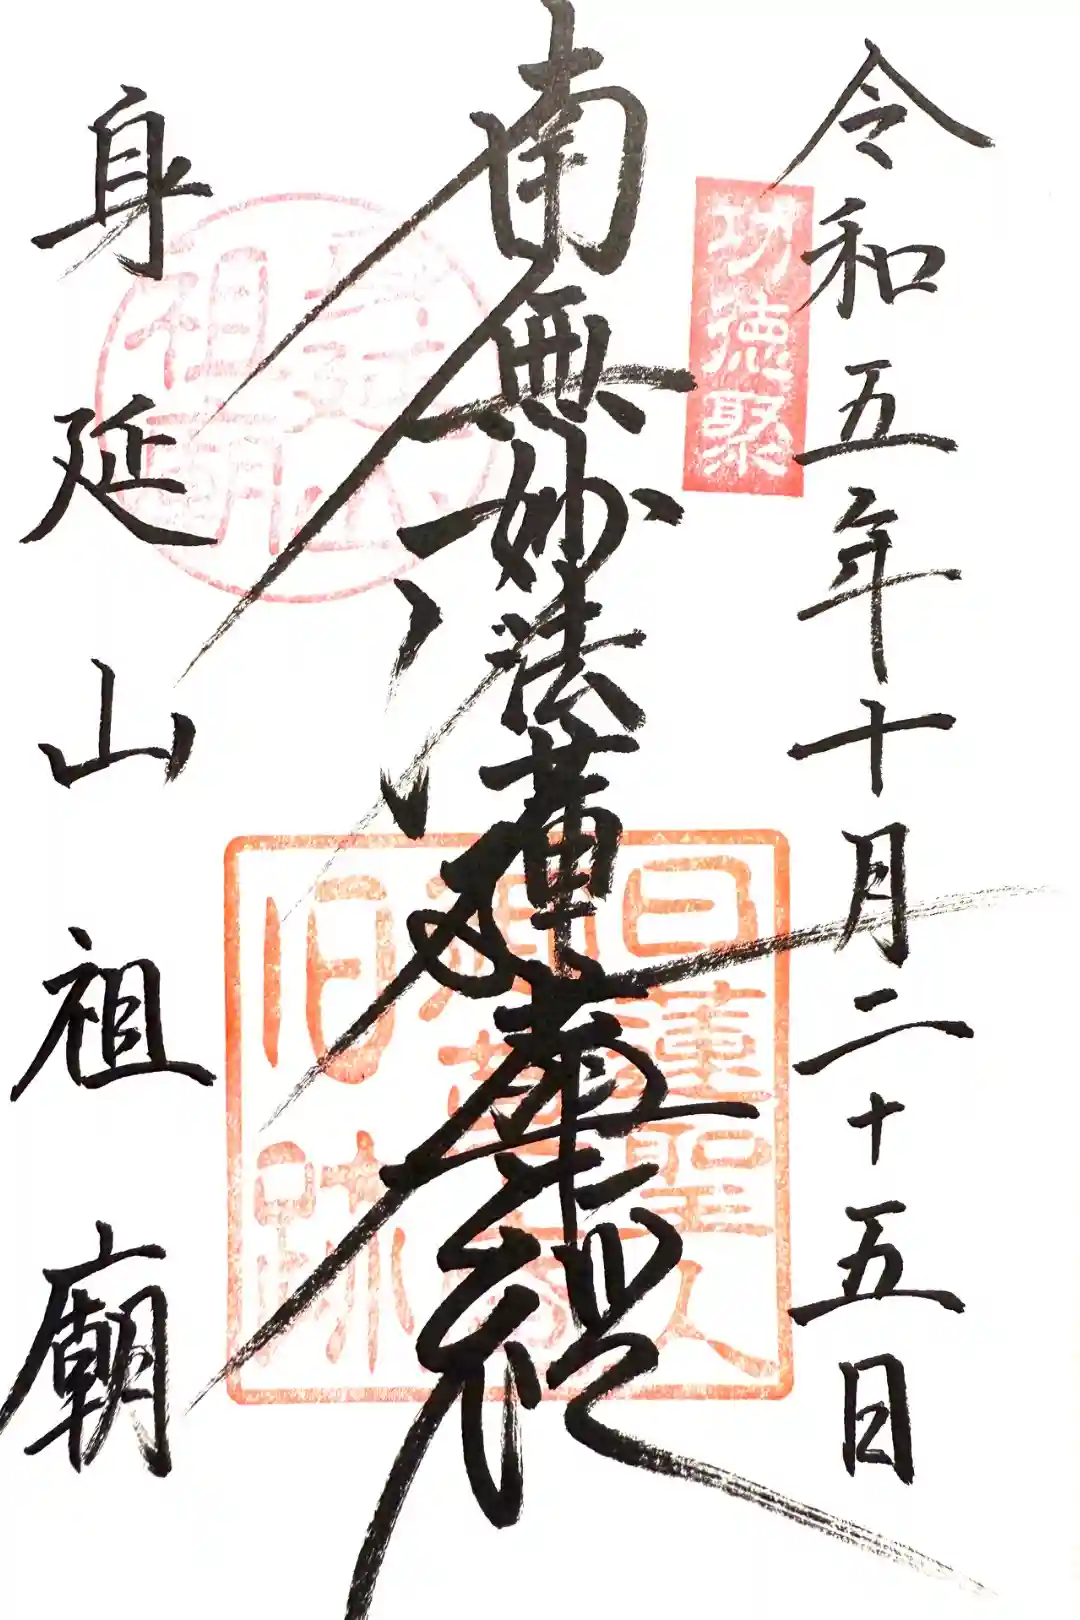 令和五年十月二十五日
功徳聚
南無妙法蓮華経
日蓮聖人
御草庵
旧跡
身延山
祖廟
身延山祖廟